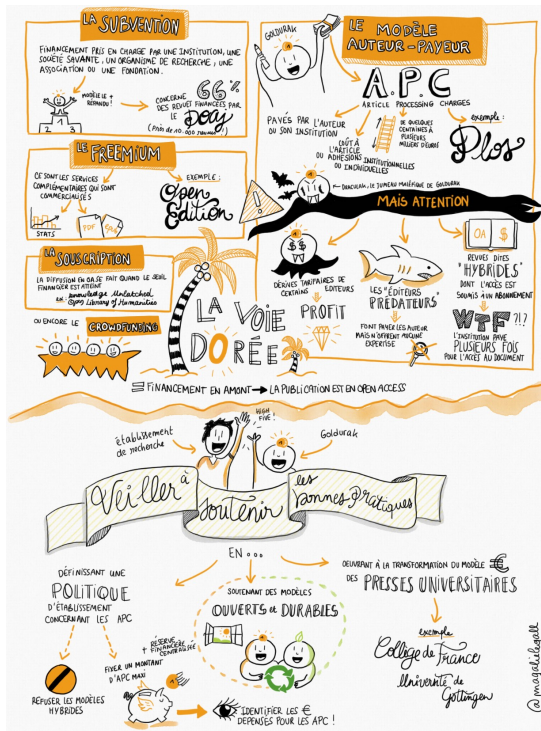 LA SUBVENTION
FINANCEMENT PRIS EN CHARGE PAR UNE INSTITUTION, UNE
SOCIÉTÉ SAVANTE, UN ORGANISME DE RECHERCHE, UNE
ASSOCIATION OU UNE FONDATION.
MODÈLE LE +
RÉPANDU !
2 1 3
CONCERNE 66%
DES REVUES FINANCÉES PAR
LE Doaj
(Près de 10 000 revues)
LE FREEMIUM
CE SONT LES SERVICES
COMPLÉMENTAIRES QUI SONT
COMMERCIALISÉS
STATS
PDF
EXEMPLE :
Open
Edition
LA SOUSCRIPTION
LA DIFFUSION EN OA SE FAIT QUAND LE SEUIL
FINANCIER EST ATTEINT
ex : Knowledge Unlatched
Open Library of Humanities
OU ENCORE LE CROWDFUNDING
GOLDURAK
LE MODÈLE
AUTEUR-PAYEUR
A.P.C
ARTICLE PROCESSING CHARGES
PAYÉS PAR L'AUTEUR
OU SON INSTITUTION
COÛT À
L'ARTICLE
OU ADHÉSIONS INSTITUTIONNELLES
OU INDIVIDUELLES
DE QUELQUES
CENTAINES À
PLUSIEURS
MILLIERS D'EUROS
exemple :
Plos
DRACULAK, LE JUMEAU MALÉFIQUE DE GOLDURAK
!
MAIS ATTENTION
$ $
DÉRIVES TARIFAIRES DE
CERTAINS ÉDITEURS
PROFIT
LES "ÉDITEURS
PRÉDATEURS"
FONT PAYER LES AUTEURS
MAIS N'OFFRENT AUCUNE
EXPERTISE
OA $
REVUES DITES
"HYBRIDES"
DONT L'ACCÈS EST
SOUMIS À UN ABONNEMENT
WTF ?!?
L'INSTITUTION PAYE
PLUSIEURS FOIS
POUR L'ACCÈS AU DOCUMENT
LA VOIE
DORÉE
= FINANCEMENT EN AMONT → LA PUBLICATION EST EN OPEN ACCESS
Établissement
de recherche
HIGH
FIVE !
Goldurak
Veiller à
soutenir
les
bonnes pratiques
EN ...
DÉFINISSANT UNE
POLITIQUE
D'ÉTABLISSEMENT
CONCERNANT LES APC
REFUSER LES MODÈLES
HYBRIDES
FIXER UN MONTANT
D'APC MAXI
+ RÉSERVE
FINANCIÈRE
CENTRALISÉE
IDENTIFIER LES €
DÉPENSÉS POUR LES APC !
SOUTENANT DES MODÈLES
OUVERTS et DURABLES
OEUVRANT À LA TRANSFORMATION DU MODÈLE €
DES PRESSES UNIVERSITAIRES
exemple
Collège de France
Université de
Göttingen
@magalielegall